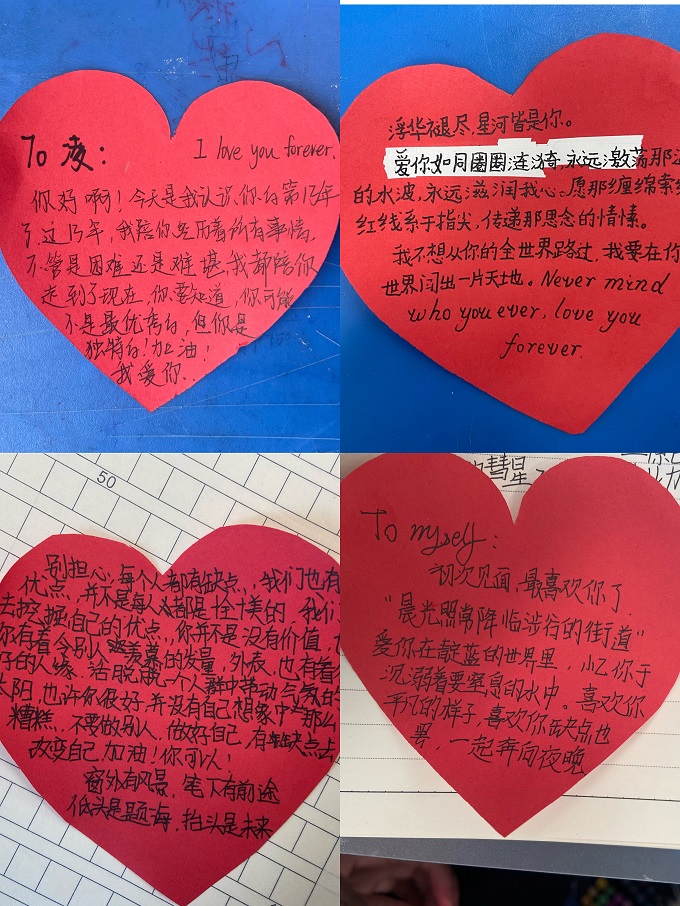 To 凌: I love you forever.
你好啊!今天是我认识你的第15年
了.这15年,我陪你经历着所有事情,
不管是困难还是难堪,我都陪你
走到了现在,你要知道,你可能
不是最优秀的,但你是
独特的!加油!
我爱你..
浮华褪尽,星河皆是你。
爱你如同圈圈涟漪,永远激荡那
的水波,永远滋润我心。愿那缠绵
红线系于指尖,传递那思念的情愫。
我不想从你的全世界路过,我要在你
世界闯出一片天地。Never mind
who you ever, love you
forever.
50
别担心,每个人都有缺点,我们也有
优点,并不是每人都是十全十美的,我们
去挖掘自己的优点,你并不是没有价值,
你有着令别人羡慕的发量,外表,也有着
好的人缘,活脱脱一个人群中带动气氛的
太阳,也许你很好,并没有自己想象中那么
糟糕,不要做别人,做好自己,有缺点去
改变自己,加油!你可以!
窗外有风景,笔下有前途
低头是题海,抬头是未来
彗星
To myself:
初次见面,最喜欢你了
"晨光照常降临涉行的街道"
爱你在靛蓝的世界里,忆你于
沉溺着要窒息的水中。喜欢你
平凡的样子,喜欢你缺点也
罢,一起奔向夜晚